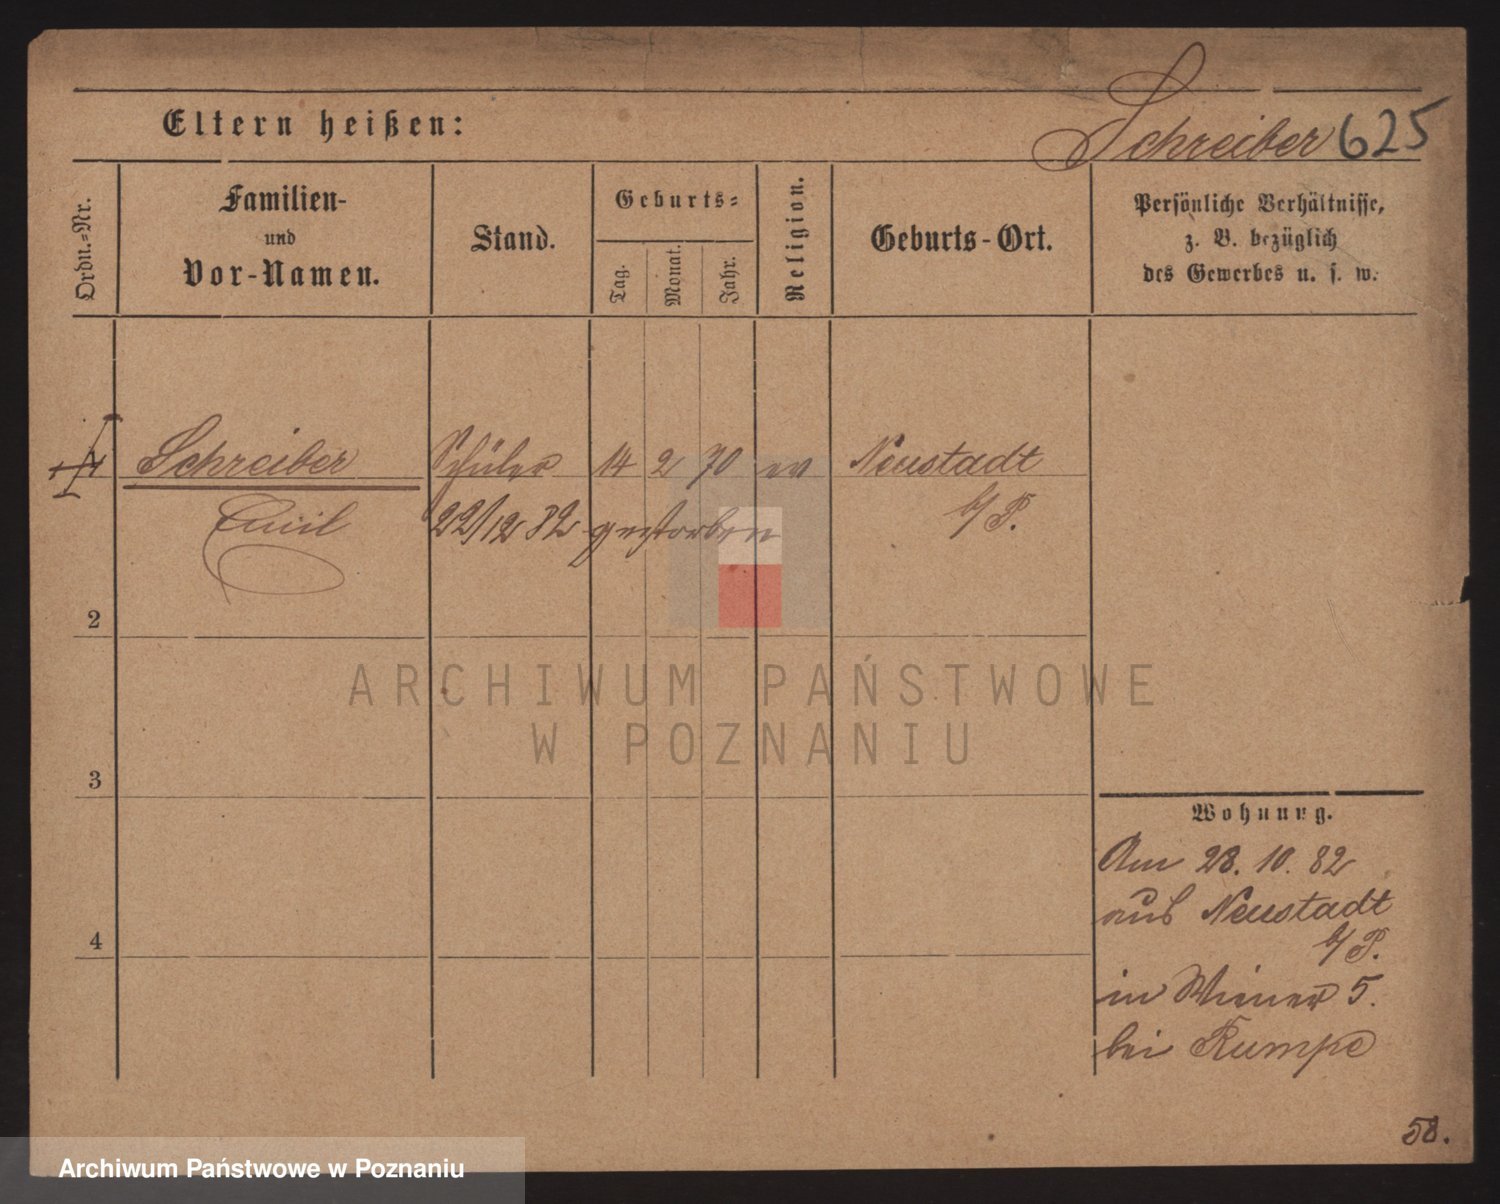 Schreiber 625
Eltern heißen:
Ordn.=Nr.
Familien-
und
Vor-Namen.
Stand.
Geburts=
Tag.
Monat.
Jahr.
Religion.
Geburts-Ort.
Persönliche Verhältnisse,
z. B. bezüglich
des Gewerbes u. s. w.
1 Schreiber Schüler 14 2 70 ev Neustadt
Emil 22/12 82 gestorben b/P.
2
3
4
Wohnung.
Am 28. 10. 82
aus Neustadt
b/P.
in Wiener 5.
bei Rumpe
58.
ARCHIWUM PAŃSTWOWE
W POZNANIU
Archiwum Państwowe w Poznaniu